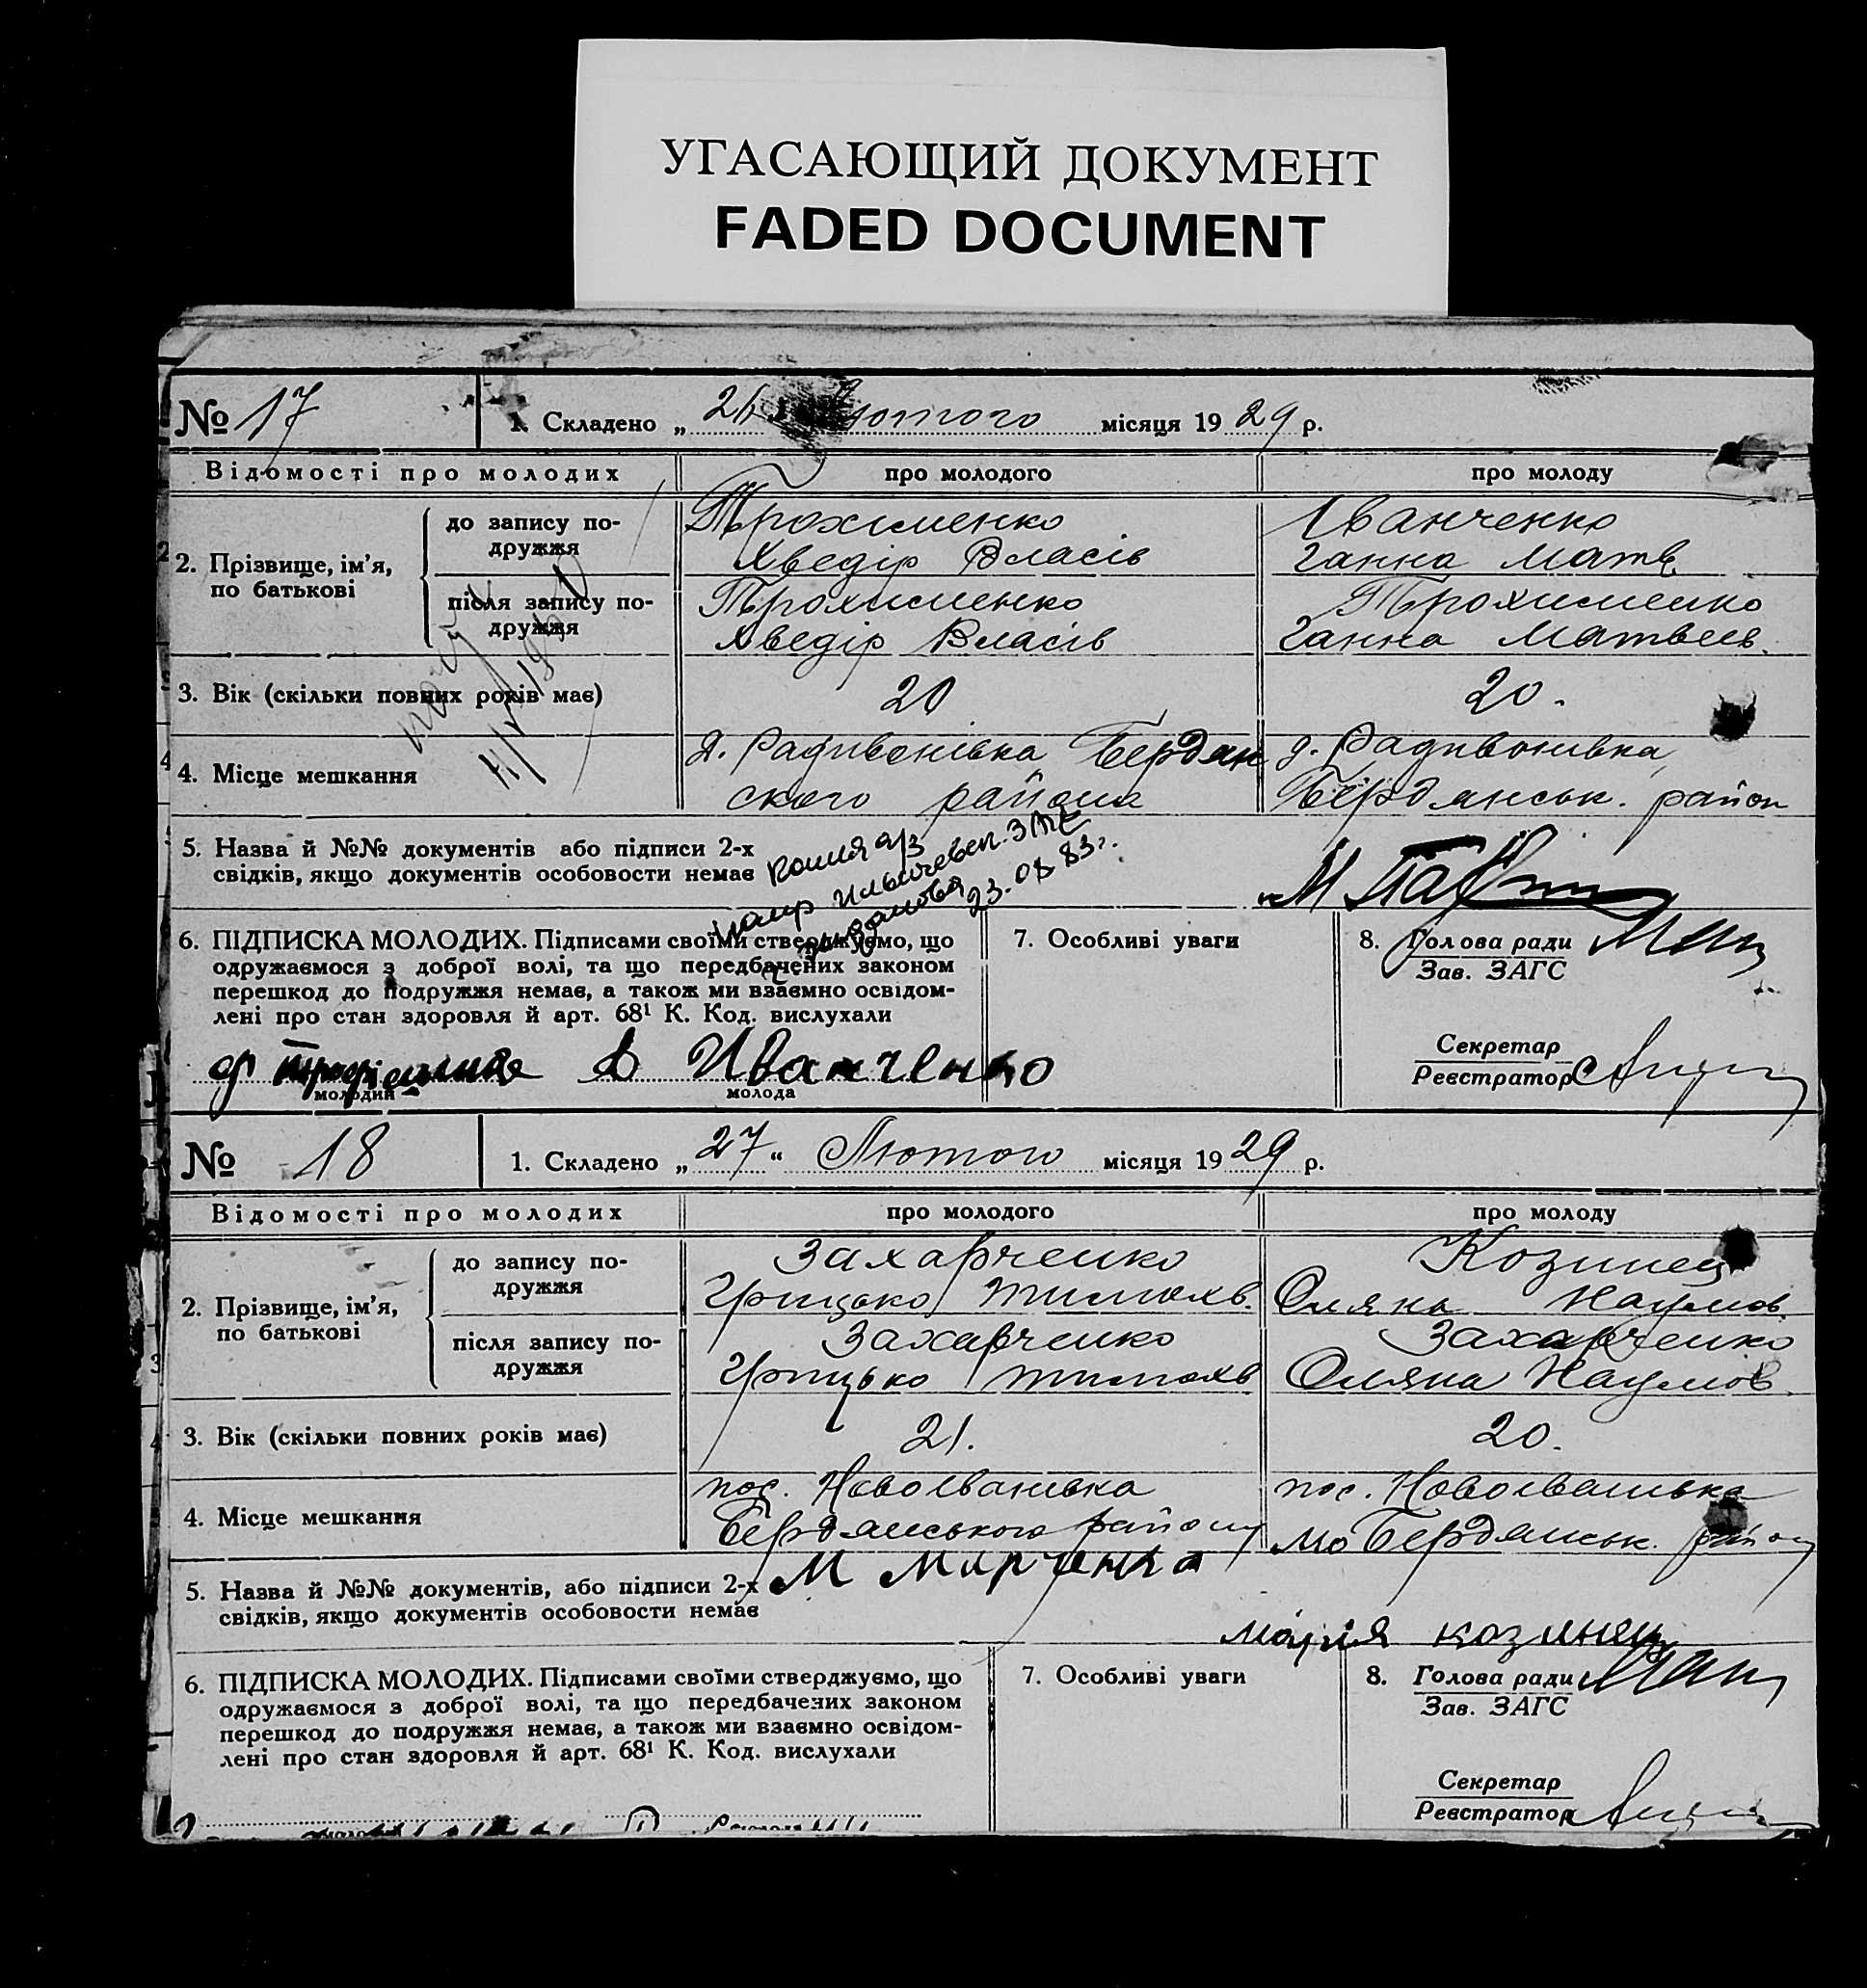 УГАСАЮЩИЙ ДОКУМЕНТ
FADED DOCUMENT
№ 17
1. Складено „ 26 “ Лютого місяця 1929 р.
Відомості про молодих про молодого про молоду
2. Прізвище, ім’я, по батькові
до запису по-
дружжя
Трохименко
Хведір Власів
Іванченко
Ганна Матв.
після запису по-
дружжя
Трохименко
Хведір Власів
Трохименко
Ганна Матвеєв.
3. Вік (скільки повних років має) 20 20.
4. Місце мешкання
д. Радивонівка Бердян
ского района
д. Радивонівка,
Бердянськ. район
5. Назва й №№ документів або підписи 2-х
свідків, якщо документів особовости немає
копия а/з
23.08.83г.
6. ПІДПИСКА МОЛОДИХ. Підписами своїми стверджуємо, що
одружаємося з доброї волі, та що передбачених законом
перешкод до подружжя немає, а також ми взаємно освідом-
лені про стан здоровля й арт. 68¹ К. Код. вислухали
Иванченко
молодий молода
7. Особливі уваги
8. Голова ради
Зав. ЗАГС
Секретар
Реєстратор
№ 18
1. Складено „ 27 “ Лютого місяця 1929 р.
Відомості про молодих про молодого про молоду
2. Прізвище, ім’я, по батькові
до запису по-
дружжя
Захарченко
Грицько Тимохв.
Козинец
Оляна Наумов.
після запису по-
дружжя
Захарченко
Грицько Тимохв
Захарченко
Оляна Наумов.
3. Вік (скільки повних років має) 21. 20.
4. Місце мешкання
пос. Новоіванівка
Бердянського району
пос. Новоіванівка
Бердянськ. району
5. Назва й №№ документів, або підписи 2-х
свідків, якщо документів особовости немає
М Марченко
мария козинец
6. ПІДПИСКА МОЛОДИХ. Підписами своїми стверджуємо, що
одружаємося з доброї волі, та що передбачених законом
перешкод до подружжя немає, а також ми взаємно освідом-
лені про стан здоровля й арт. 68¹ К. Код. вислухали
7. Особливі уваги
8. Голова ради
Зав. ЗАГС
Секретар
Реєстратор